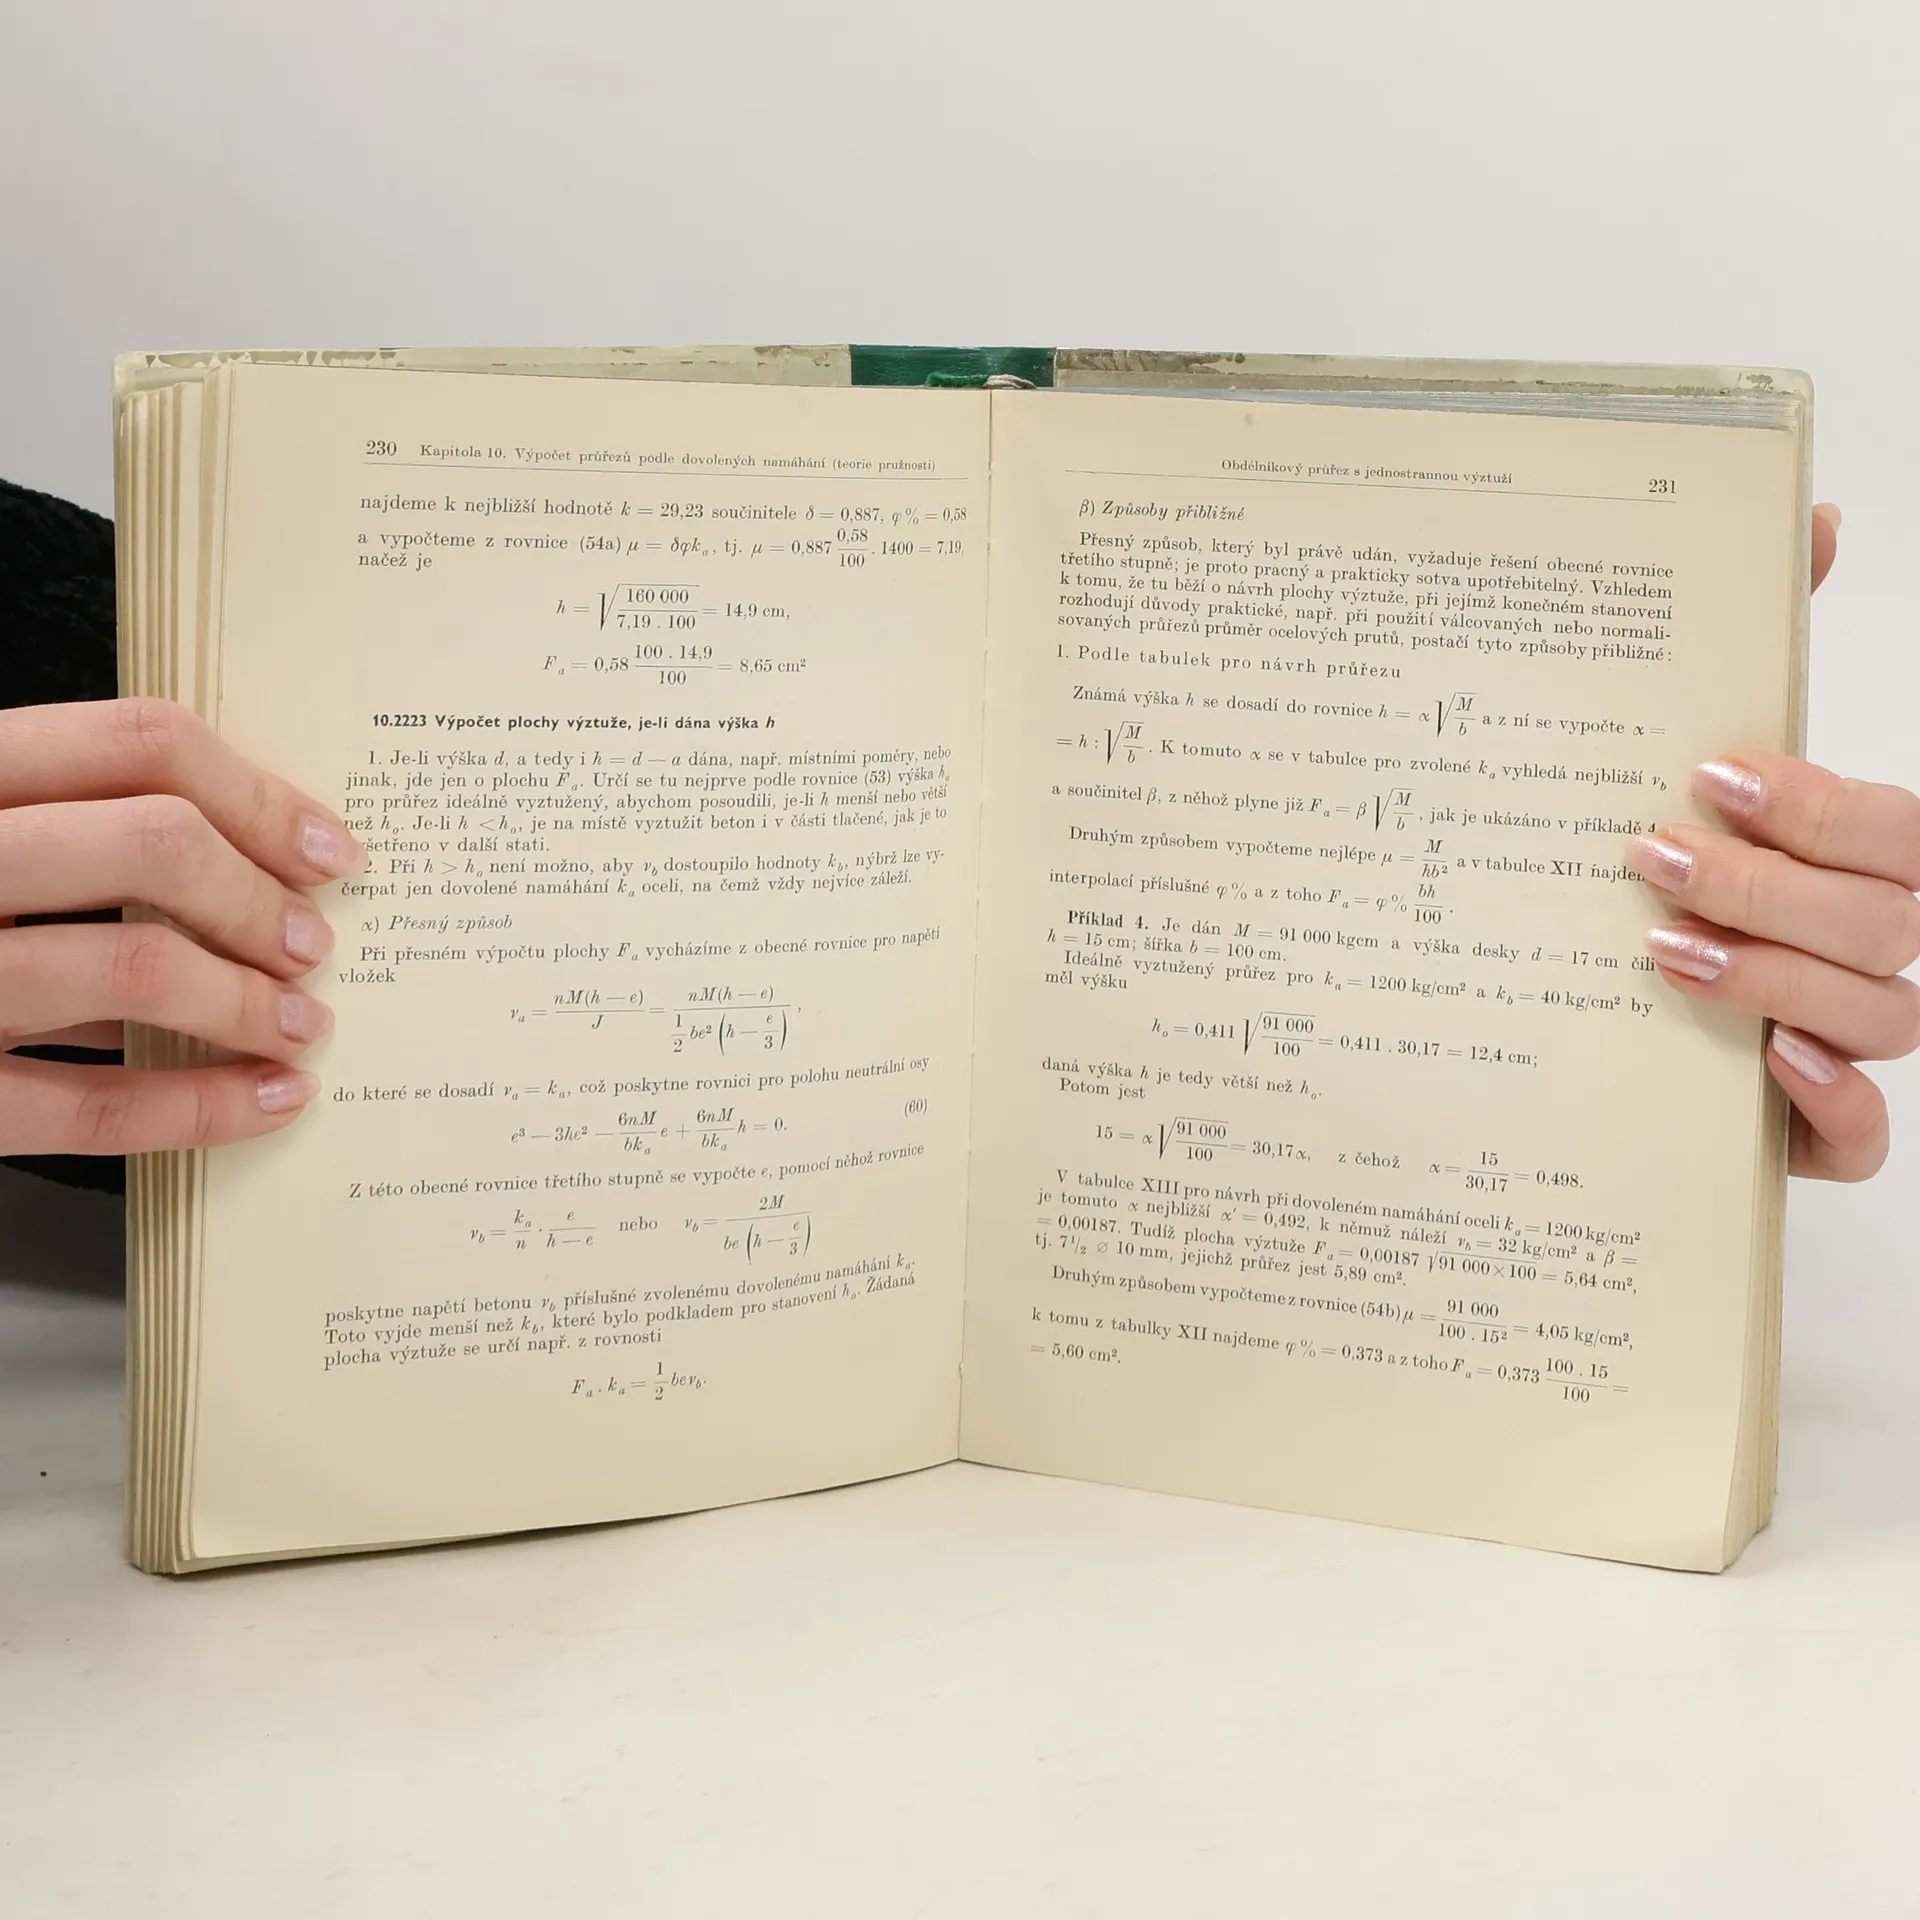 230 Kapitola 10. Výpočet průřezů podle dovolených namáhání (teorie pružnosti)
najdeme k nejbližší hodnotě k = 29,23 součinitele δ = 0,887, φ% = 0,58
a vypočteme z rovnice (54a) μ = δφkₐ, tj. μ = 0,887 0,58/100 . 1400 = 7,19,
načež je
h = √(160 000/(7,19 . 100)) = 14,9 cm,
Fₐ = 0,58 (100 . 14,9)/100 = 8,65 cm²
10.2223 Výpočet plochy výztuže, je-li dána výška h
1. Je-li výška d, a tedy i h = d — a dána, např. místními poměry, nebo
jinak, jde jen o plochu Fₐ. Určí se tu nejprve podle rovnice (53) výška hₒ
pro průřez ideálně vyztužený, abychom posoudili, je-li h menší nebo větší
než hₒ. Je-li h < hₒ, je na místě vyztužit beton i v části tlačené, jak je to
šetřeno v další stati.
2. Při h > hₒ není možno, aby ν_b dostoupilo hodnoty k_b, nýbrž lze vy-
čerpat jen dovolené namáhání kₐ oceli, na čemž vždy nejvíce záleží.
α) Přesný způsob
Při přesném výpočtu plochy Fₐ vycházíme z obecné rovnice pro napětí
vložek
νₐ = nM(h — e)/J = nM(h — e)/(1/2 be² (h — e/3)),
do které se dosadí νₐ = kₐ, což poskytne rovnici pro polohu neutrální osy
e³ — 3he² — 6nM/bkₐ e + 6nM/bkₐ h = 0. (60)
Z této obecné rovnice třetího stupně se vypočte e, pomocí něhož rovnice
ν_b = kₐ/n . e/(h — e) nebo ν_b = 2M/(be (h — e/3))
poskytne napětí betonu ν_b příslušné zvolenému dovolenému namáhání kₐ.
Toto vyjde menší než k_b, které bylo podkladem pro stanovení hₒ. Žádaná
plocha výztuže se určí např. z rovnosti
Fₐ . kₐ = 1/2 beν_b.
Obdélníkový průřez s jednostrannou výztuží 231
β) Způsoby přibližné
Přesný způsob, který byl právě udán, vyžaduje řešení obecné rovnice
třetího stupně; je proto pracný a prakticky sotva upotřebitelný. Vzhledem
k tomu, že tu běží o návrh plochy výztuže, při jejímž konečném stanovení
rozhodují důvody praktické, např. při použití válcovaných nebo normali-
sovaných průřezů průměr ocelových prutů, postačí tyto způsoby přibližné:
1. Podle tabulek pro návrh průřezu
Známá výška h se dosadí do rovnice h = α √(M/b) a z ní se vypočte α =
= h : √(M/b). K tomuto α se v tabulce pro zvolené kₐ vyhledá nejbližší ν_b
a součinitel β, z něhož plyne již Fₐ = β √(M/b), jak je ukázáno v příkladě 4.
Druhým způsobem vypočteme nejlépe μ = M/hb² a v tabulce XII najdem
interpolací příslušné φ% a z toho Fₐ = φ% bh/100.
Příklad 4. Je dán M = 91 000 kgcm a výška desky d = 17 cm čili
h = 15 cm; šířka b = 100 cm.
Ideálně vyztužený průřez pro kₐ = 1200 kg/cm² a k_b = 40 kg/cm² by
měl výšku
hₒ = 0,411 √(91 000/100) = 0,411 . 30,17 = 12,4 cm;
daná výška h je tedy větší než hₒ.
Potom jest
15 = α √(91 000/100) = 30,17α, z čehož α = 15/30,17 = 0,498.
V tabulce XIII pro návrh při dovoleném namáhání oceli kₐ = 1200 kg/cm²
je tomuto α nejbližší α′ = 0,492, k němuž náleží ν_b = 32 kg/cm² a β =
= 0,00187. Tudíž plocha výztuže Fₐ = 0,00187 √(91 000×100) = 5,64 cm²,
tj. 7½ ⌀ 10 mm, jejichž průřez jest 5,89 cm².
Druhým způsobem vypočteme z rovnice (54b) μ = 91 000/(100 . 15²) = 4,05 kg/cm²,
k tomu z tabulky XII najdeme φ% = 0,373 a z toho Fₐ = 0,373 (100 . 15)/100 =
= 5,60 cm².